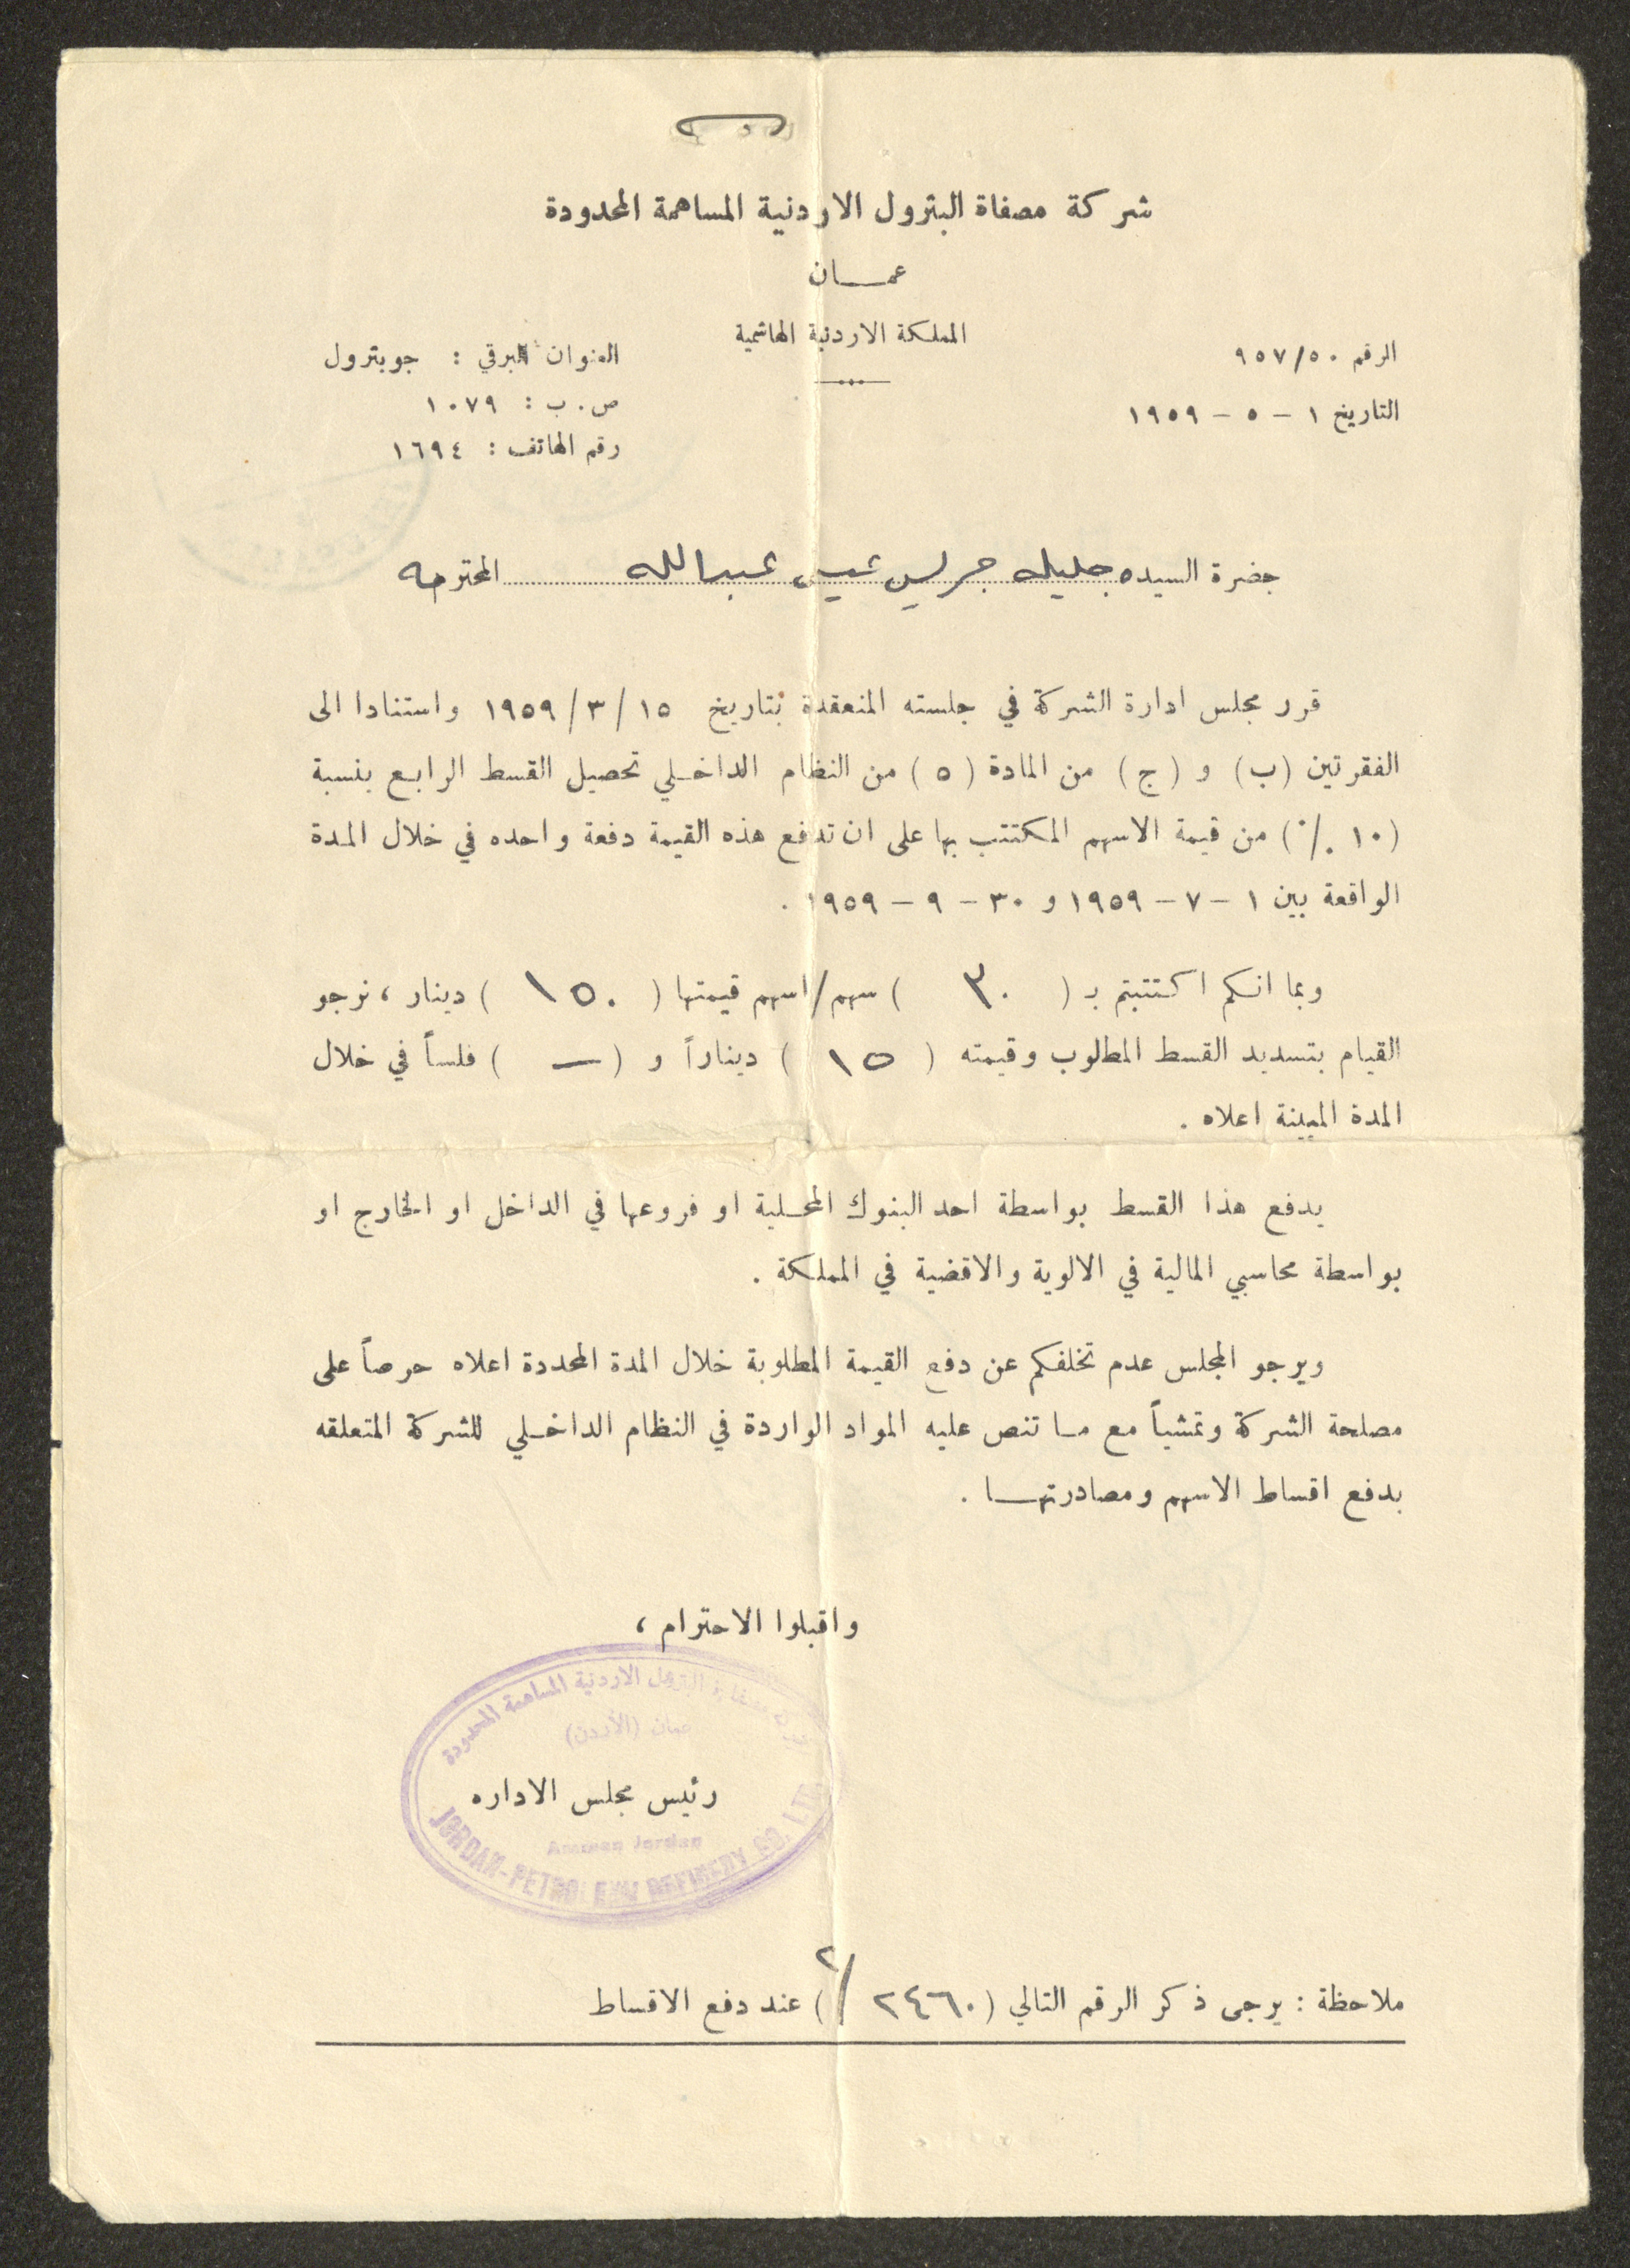 شركة مصفاة البترول الاردنية المساهمة المحدودة
عمـــان
المملكة الاردنية الهاشمية
الرقم ٩٥٧/٥٠
التاريخ ١ - ٥ - ١٩٥٩
العنوان البرقي : جوبترول
ص . ب : ١٠٧٩
رقم الهاتف : ١٦٩٤
حضرة السيده جليله جريس عيسى عبدالله المحترمه
قرر مجلس ادارة الشركة في جلسته المنعقدة بتاريخ ١٥ / ٣ / ١٩٥٩ واستنادا الى
الفقرتين (ب) و (ج) من المادة (٥) من النظام الداخلي تحصيل القسط الرابع بنسبة
(١٠ ٪) من قيمة الاسهم المكتتب بها على ان تدفع هذه القيمة دفعة واحده في خلال المدة
الواقعة بين ١ - ٧ - ١٩٥٩ و ٣٠ - ٩ - ١٩٥٩ .
وبما انكم اكتتبتم بـ ( ٣٠ ) سهم/اسهم قيمتها ( ١٥٠ ) دينار ، نرجو
القيام بتسديد القسط المطلوب وقيمته ( ١٥ ) ديناراً و ( — ) فلساً في خلال
المدة المبينة اعلاه .
يدفع هذا القسط بواسطة احد البنوك المحلية او فروعها في الداخل او الخارج او
بواسطة محاسبي المالية في الالوية والاقضية في المملكة .
ويرجو المجلس عدم تخلفكم عن دفع القيمة المطلوبة خلال المدة المحددة اعلاه حرصاً على
مصلحة الشركة وتمشياً مع مـا تنص عليه المواد الواردة في النظام الداخلي للشركة المتعلقه
بدفع اقساط الاسهم ومصادرتهـــا .
واقبلوا الاحترام ،
شركة مصفاة البترول الاردنية المساهمة المحدودة
عمان (الأردن)
رئيس مجلس الاداره
Amman Jordan
JORDAN-PETROLEUM REFINERY CO. LTD
ملاحظة : يرجى ذكر الرقم التالي ( ٢٤٦٠ / ٢ ) عند دفع الاقساط